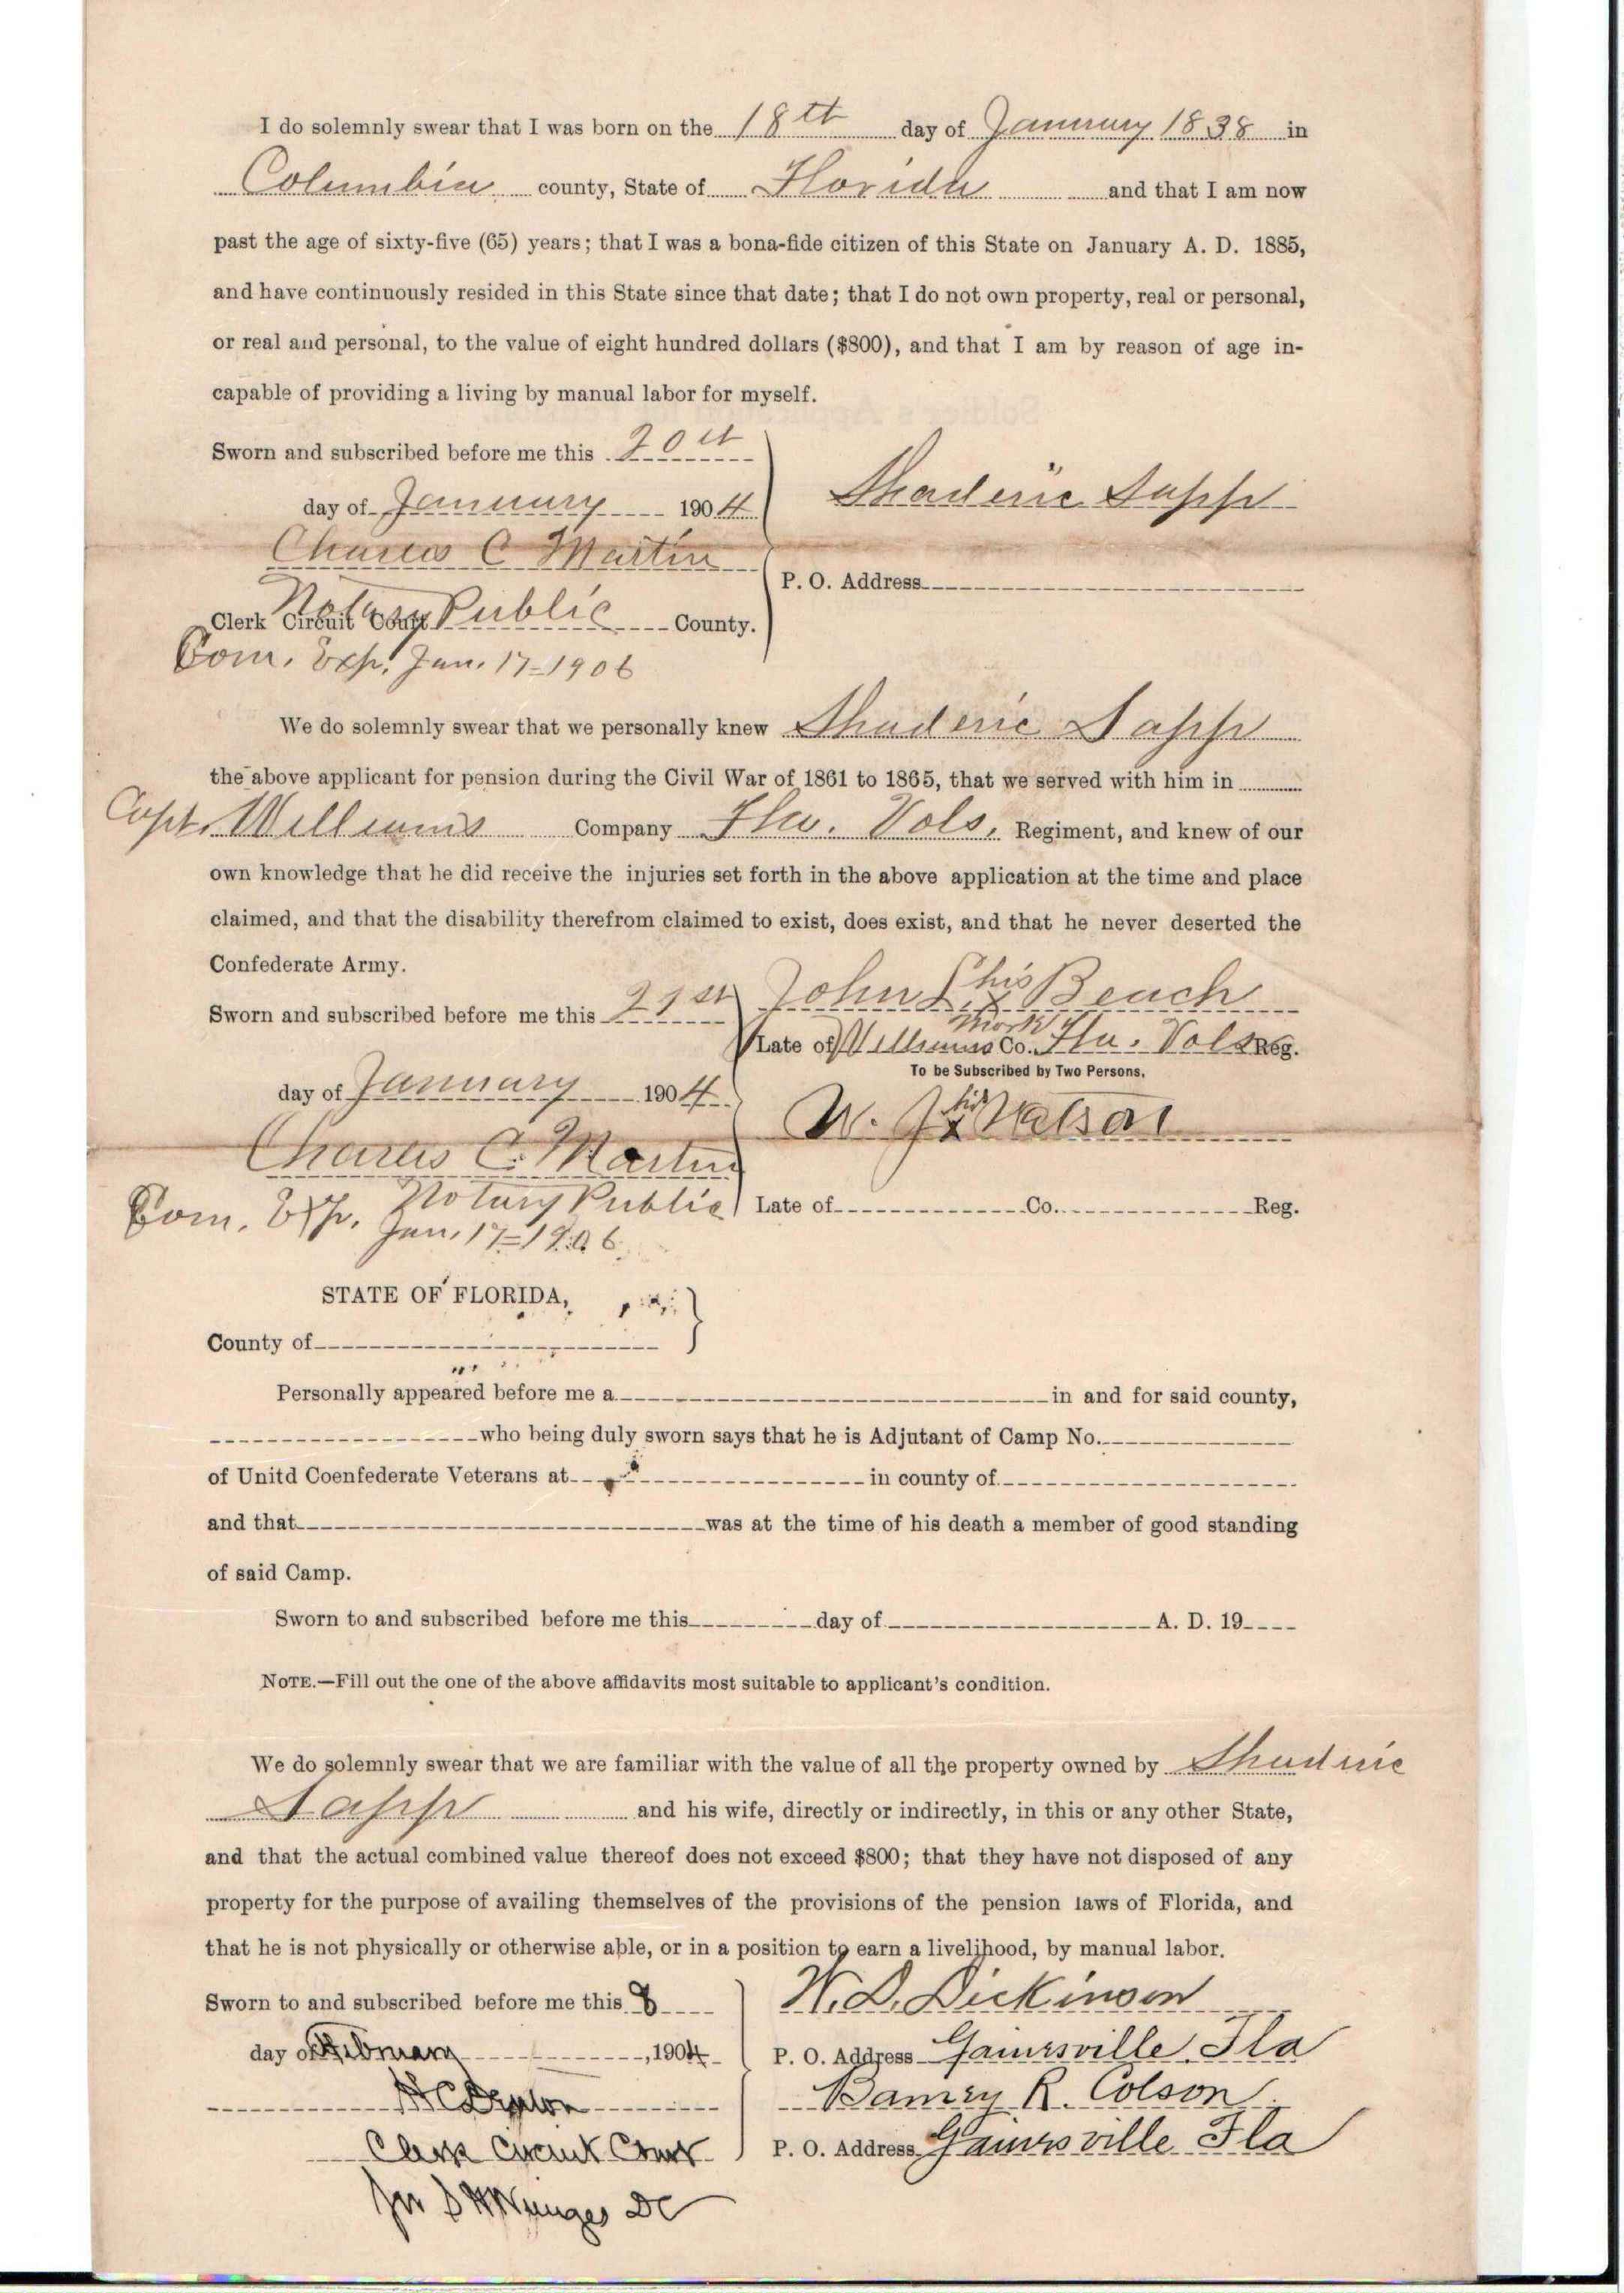 I do solemnly swear that I was born on the 18th day of January 1838 in
Columbia county, State of Florida and that I am now
past the age of sixty-five (65) years; that I was a bona-fide citizen of this State on January A. D. 1885,
and have continuously resided in this State since that date; that I do not own property, real or personal,
or real and personal, to the value of eight hundred dollars ($800), and that I am by reason of age in-
capable of providing a living by manual labor for myself.
Sworn and subscribed before me this 20th
day of January 1904
Shaderic Sapp
Charles C Martin
P. O. Address
Notary Public
Clerk Circuit Court County.
Com. Exp. Jan. 17-1906
We do solemnly swear that we personally knew Shaderic Sapp
the above applicant for pension during the Civil War of 1861 to 1865, that we served with him in
Capt. Williams Company Fla. Vols. Regiment, and knew of our
own knowledge that he did receive the injuries set forth in the above application at the time and place
claimed, and that the disability therefrom claimed to exist, does exist, and that he never deserted the
Confederate Army.
Sworn and subscribed before me this 21st
John L. his x mark Beach
Late of Williams Co. Fla. Vols Reg.
To be Subscribed by Two Persons.
day of January 1904
W. J. his x Watson
Charles C. Martin
Notary Public
Late of Co. Reg.
Com. Exp. Jan. 17-1906
STATE OF FLORIDA,
County of
Personally appeared before me a in and for said county,
who being duly sworn says that he is Adjutant of Camp No.
of Unitd Coenfederate Veterans at in county of
and that was at the time of his death a member of good standing
of said Camp.
Sworn to and subscribed before me this day of A. D. 19
NOTE.—Fill out the one of the above affidavits most suitable to applicant's condition.
We do solemnly swear that we are familiar with the value of all the property owned by Shaderic
Sapp and his wife, directly or indirectly, in this or any other State,
and that the actual combined value thereof does not exceed $800; that they have not disposed of any
property for the purpose of availing themselves of the provisions of the pension laws of Florida, and
that he is not physically or otherwise able, or in a position to earn a livelihood, by manual labor.
Sworn to and subscribed before me this 8
W. D. Dickinson
day of February, 1904
P. O. Address Gainesville, Fla
H C Denton
Barney R. Colson
Clerk Circuit Court
P. O. Address Gainesville Fla
DC